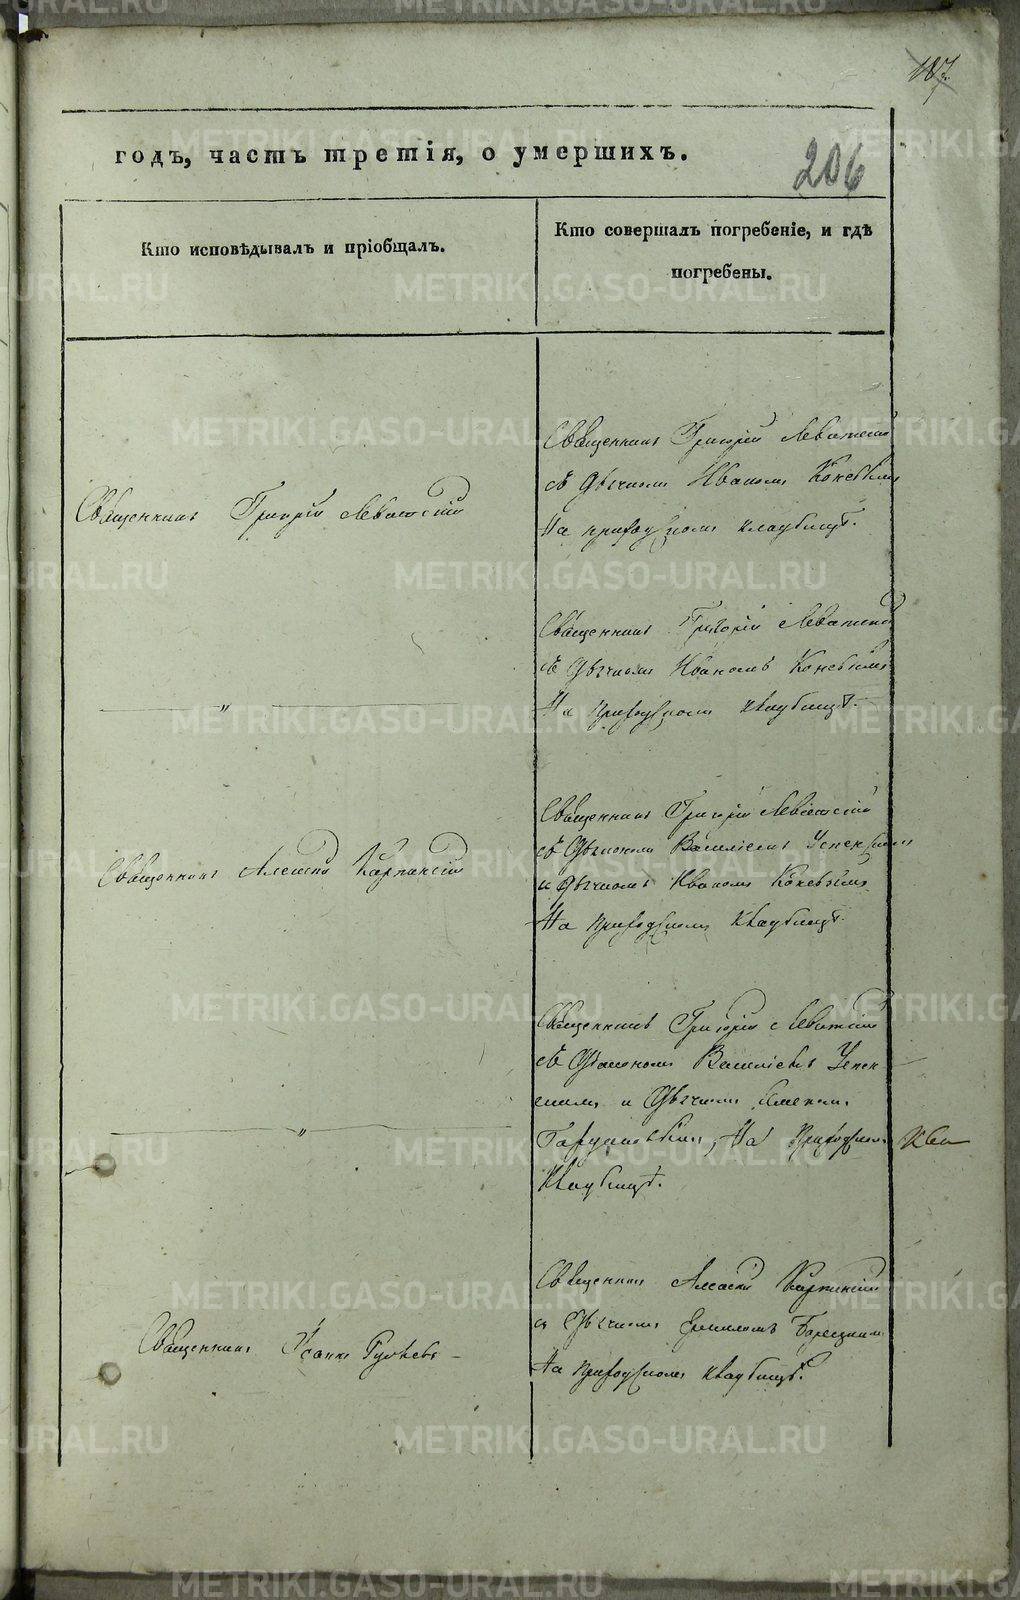 187.
годъ, часть третія, о умершихъ.
206
Кто исповѣдывалъ и пріобщалъ.
Кто совершалъ погребеніе, и гдѣ
погребены.
Священникъ Григорій Левитскій
Священникъ Григорій Левитскій
съ Дьячкомъ Иваномъ Коневымъ
На приходскомъ кладбищѣ.
"
Священникъ Григорій Левитскій
съ Дьячкомъ Иваномъ Коневымъ
На приходскомъ кладбищѣ.
Священникъ Алексѣй Карпинскій
Священникъ Григорій Левитскій
съ Дьякономъ Василіемъ Успенскимъ
и Дьячкомъ Иваномъ Коневымъ
На приходскомъ кладбищѣ.
"
Священникъ Григорій Левитскій
съ Дьякономъ Василіемъ Успен
скимъ и Дьячкомъ
На Приходскомъ
Кладбищѣ.
Священникъ
Священникъ Алексѣй Карпинскій
съ Дьячкомъ
На приходскомъ кладбищѣ.
METRIKI.GASO-URAL.RU